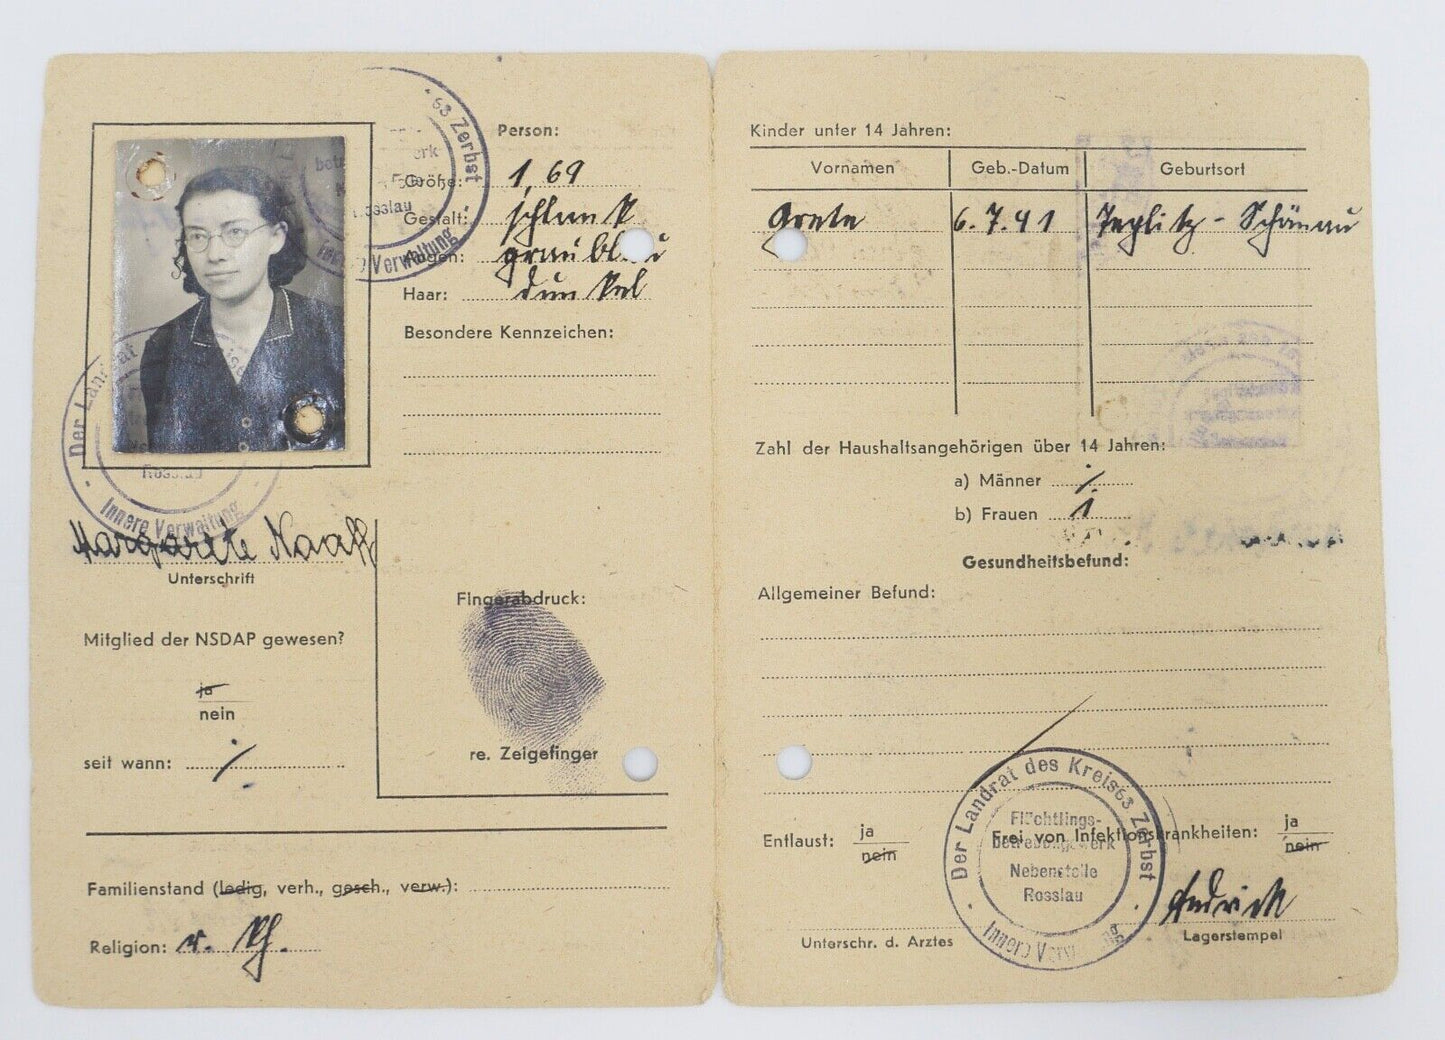 Person:
Größe: 1,69
Gestalt: schlank
Augen: graublau
Haar: dunkel
Besondere Kennzeichen:
63 Zerbst
Rosslau
Innere Verwaltung
Der Landrat
Rosslau
Innere Verwaltung
Margarete Naaff
Unterschrift
Mitglied der NSDAP gewesen?
ja
nein
seit wann: ./.
Fingerabdruck:
re. Zeigefinger
Familienstand (ledig, verh., gesch., verw.):
Religion: r. kh.
Kinder unter 14 Jahren:
Vornamen Geb.-Datum Geburtsort
Grete 6.7.41 Teplitz - Schönau
Zahl der Haushaltsangehörigen über 14 Jahren:
a) Männer ./.
b) Frauen 1
Gesundheitsbefund:
Allgemeiner Befund:
Entlaust: ja
nein
Frei von Infektionskrankheiten: ja
nein
Der Landrat des Kreis63 Zerbst
Flüchtlings-
betreuungswerk
Nebenstelle
Rosslau
Unterschr. d. Arztes
Lagerstempel